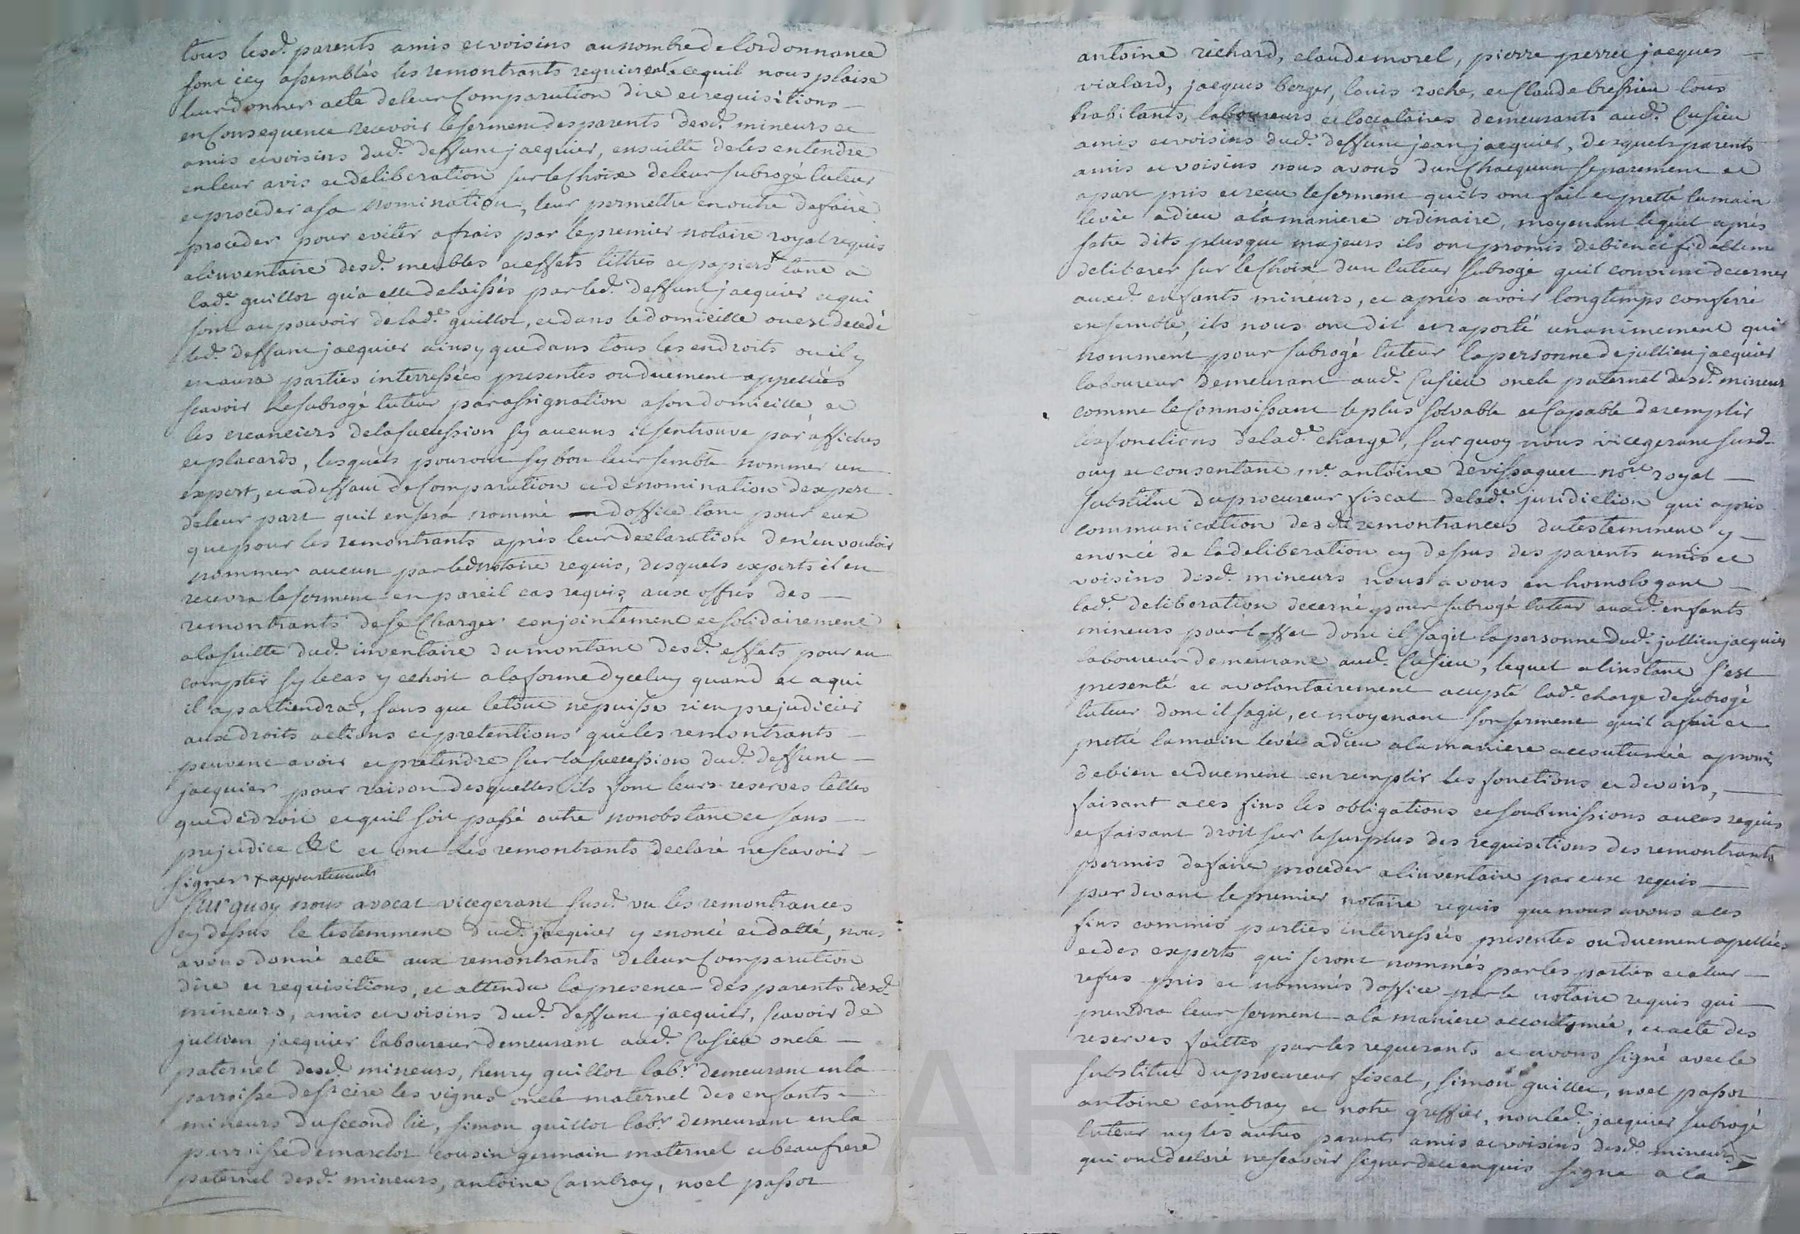 tous lesd. parents amis et voisins au nombre de lordonnance
sont icy assemblés les remontrants requierent acequil nous plaise
leur donner acte de leur Comparution dire et requisitions
en Consequence recevoir le serment des parents desd. mineurs et
amis et voisins dud. deffunt jacquier, ensuitte de les entendre
en leur avis et deliberation sur le Choix de leur subrogé tuteur
et proceder a sa nomination, leur permettre en outre de faire
proceder pour eviter a frais par le premier notaire royal requis
a linventaire desd. meubles et effets tittres et papiers x tant a
lad.e guillot qu'a elle delaissés par led. deffunt jacquier et qui
sont au pouvoir de lad.e guillot, et dans le domicille ou est decedé
led. deffunt jacquier ainsy que dans tous les endroits ou il y
en aura parties interressées presentes ou duement appellées
scavoir le subrogé tuteur par assignation a son domicille et
les creanciers de la succession sy aucuns il sen trouve par affiches
et placards, lesquels pourront sy bon leur semble nommer un
expert, et a deffaut de Comparution et de nomination dexpert
de leur part quil en sera nommé doffice tant pour eux
que pour les remontrants après leur declaration den'en vouloir
nommer aucun par led notaire requis, desquels experts il en
recevra le serment en pareil cas requis, aux offres des
remontrants de se Charger conjointement et solidairement
a la suitte dud. inventaire du montant desd. effets pour en
compter sy le cas y echoit a la forme dyceluy quand et a qui
il apartiendra, sans que le tout ne puisse rien prejudicier
aux droits actions et pretentions que les remontrants
peuvent avoir et pretendre sur la succession dud. deffunt
jacquier pour raison desquelles ils font leurs reserves telles
que de droit et quil soit passé outre nonobstant et sans
prejudice &c et ont les remontrants declaré ne scavoir
signer x appartenants
Sur quoy nous avocat vicegerant susd. vu les remontrances
cy dessus le testemment dud. jacquier y enoncé et datté, nous
avons donné acte aux remontrants de leur Comparution
dire et requisitions, et attendu la presence des parents desd.
mineurs, amis et voisins dud. deffunt jacquier, scavoir de
jullien jacquier laboureur demeurant aud. Cusieu oncle
paternel desd. mineurs, henry guillot labr. demeurant en la
parroisse de st cire les vignes oncle maternel des enfants
mineurs du second lit, simon guillot labr. demeurant en la
parroisse de marclot cousin germain maternel et beaufrere
paternel desd. mineurs, antoine Cambray, noel passot
antoine richard, claude morel, pierre perret jacques
vialard, jacques berger, louis roche, et Claude bressieu tous
habitants, laboureurs et locataires demeurants aud. Cusieu
amis et voisins dud. deffunt jean jacquier, desquels parents
amis et voisins nous avons dun Chacquun separement et
a part pris et recu le serment quils ont fait et pretté la main
levée a dieu a la maniere ordinaire, moyenant lequel après
setre dits plus que majeurs ils ont promis de bien et fidellem
deliberer sur le Choix dun tuteur subrogé quil convient decerner
auxd. enfants mineurs, et après avoir longtemps conferré
ensemble, ils nous ont dit et raporté unanimement qui
nomment pour subrogé tuteur la personne de jullien jacquier
laboureur demeurant aud. Cusieu oncle paternel desd. mineurs
comme le Connoissant le plus solvable et Capable de remplir
les fonctions de lad.e charge, sur quoy nous vicegerant susd.
ouy et consentant me antoine devissaguet nore. royal
substitut du procureur fiscal de lad.e juridiction qui après
communication desd. remontrances du testemment y
enoncé de la deliberation cy dessus des parents amis et
voisins desd. mineurs nous avons en homologant
lad. deliberation decerné pour subrogé tuteur auxd. enfants
mineurs pour l'effet dont il sagit la personne dud. jullien jacquier
laboureur demeurant aud. Cusieu, lequel a linstant s'est
presenté et a volontairement accepté lad.e charge de subrogé
tuteur dont il sagit, et moyenant son serment quil a fait et
pretté la main levée a dieu a la maniere accoutumée a promis
de bien et duement en remplir les fonctions et devoirs,
faisant a ces fins les obligations et soubmissions au cas requis
et faisant droit sur le surplus des requisitions des remontrants
permis de faire proceder a linventaire par eux requis
par devant le premier notaire requis que nous avons a ces
fins commis parties interressées presentes ou duement apellées
et des experts qui seront nommés par les parties et a leur
refus pris et nommés doffice par le notaire requis qui
prendra leur serment a la maniere accoutumée, et acte des
reserves faittes par les requerants et avons signé avec le
substitut du procureur fiscal, simon guillet, noel passot
antoine cambray et notre greffier, non led. jacquier subrogé
tuteur ny les autres parents amis et voisins desd. mineurs
qui ont declaré ne scavoir signer de ce enquis signe a la